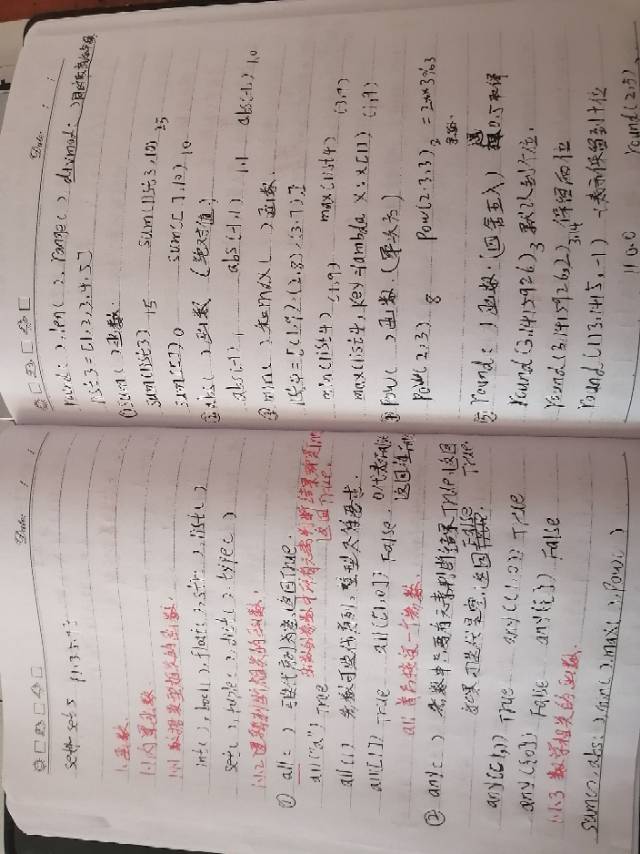 Date:
set5 {1.3.5.7}
1.函数.
1.1内置函数
1.1.1 数据类型相关的函数.
int( ). bool( ). float( ). str( ). list( )
set( ). tuple( ). dict( ). type( )
1.1.2 逻辑判断相关的函数.
① all( ) 可迭代系列为空.返回True.
参数中所有元素判断结果都为True
返回True.
all("a") True
all( ) 参数可迭代系列, 整型不符要求
all([1]) True all([1,0]) False. 0代表False
返回
all 首先接受一个参数.
② any( ) 参数中只要有元素判断结果True.返回True
如果可迭代是空.返回False
any([1,]) True any([1,0]) True
any([0]) False any([]) False
1.1.3 数学相关的函数.
sum( ). abs( ). min( ). max( ). pow( )
Date:
round( ). len( ). range( ). divmod( )
list3=[1.2.3.4.5]
①sum( )函数.
sum(list3) 15 sum(list3,10) 25
sum([]) 0 sum([],10) 10
②abs( )函数 (绝对值)
abs(-1) 1 abs(-1.1) 1.1 abs(-1.) 1.0
③ min( )和max( )函数.
list4=[(1,9),(2.8),(3.7)]
min(list4) (1.9) max(list4) (3,7)
max(list4, key=lambda x: x[1]) (1,9)
④ pow( )函数. (幂次方)
pow(2,3) 8 pow(2.3,3) 2 =2**3%3
余数.
⑤ round( )函数. (四舍五入)
round(3.1415926) 3 默认到个位.
round(3.1415926,2) 3.14 保留两位
round(113.1415,-1) -表示保留到十位
110.0 round(2.5)